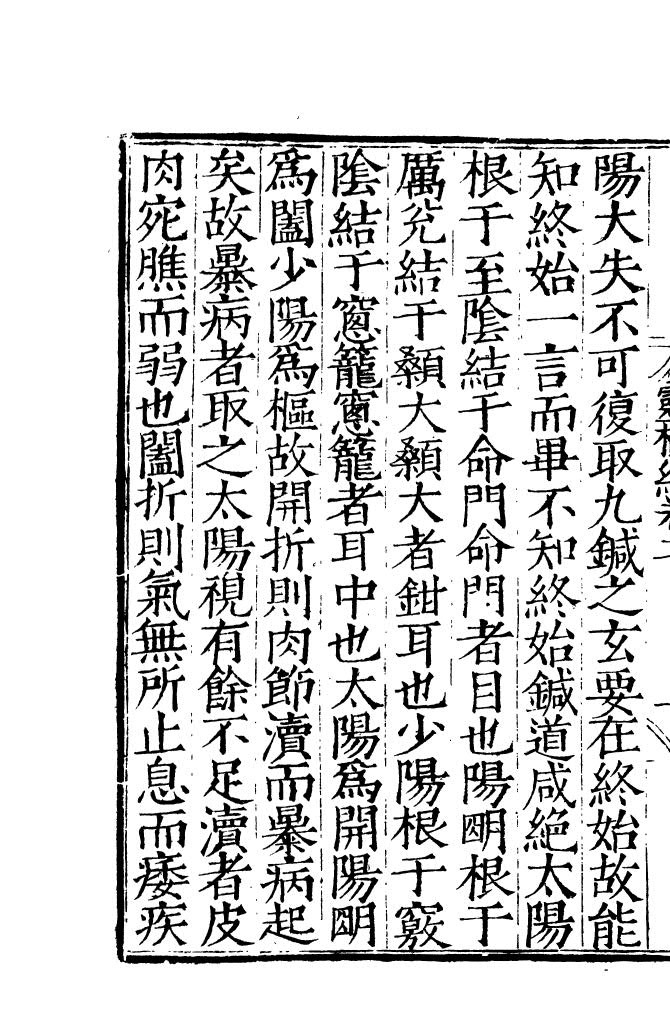 陽大失不可復取九鍼之玄要在終始故能
知終始一言而畢不知終始鍼道咸絕太陽
根于至陰結于命門命門者目也陽明根于
厲兊結于顙大顙大者鉗耳也少陽根于竅
陰結于窻籠窻籠者耳中也太陽爲開陽明
爲闔少陽爲樞故開折則肉節瀆而暴病起
矣故暴病者取之太陽視有餘不足瀆者皮
肉宛膲而弱也闔折則氣無所止息而痿疾